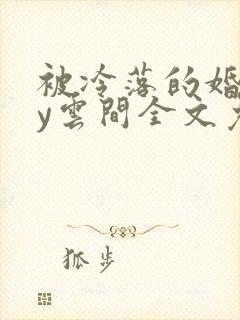 被冷落的婚
y雲間全文免
狐步